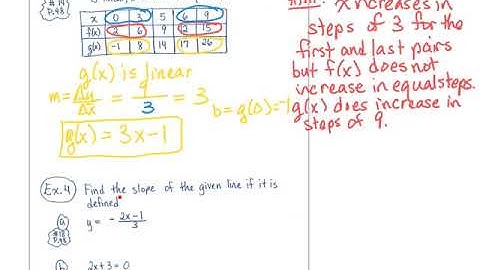 # 14
P.98
is linear,
x 0 3 5 6 9
f(x) 2 6 9 12 15
g(x) -1 8 14 17 26
g(x) is linear
m = Δy/Δx = 9/3 = 3
b = g(0) = -1
g(x) = 3x-1
x increases in
steps of 3 for the
first and last pairs
but f(x) does not
increase in equal steps.
g(x) does increase in
steps of 9.
Ex. 4 Find the slope of the given line if it is
defined
a y = - 2x-1/3
#18
P.98
b 2x+3=0